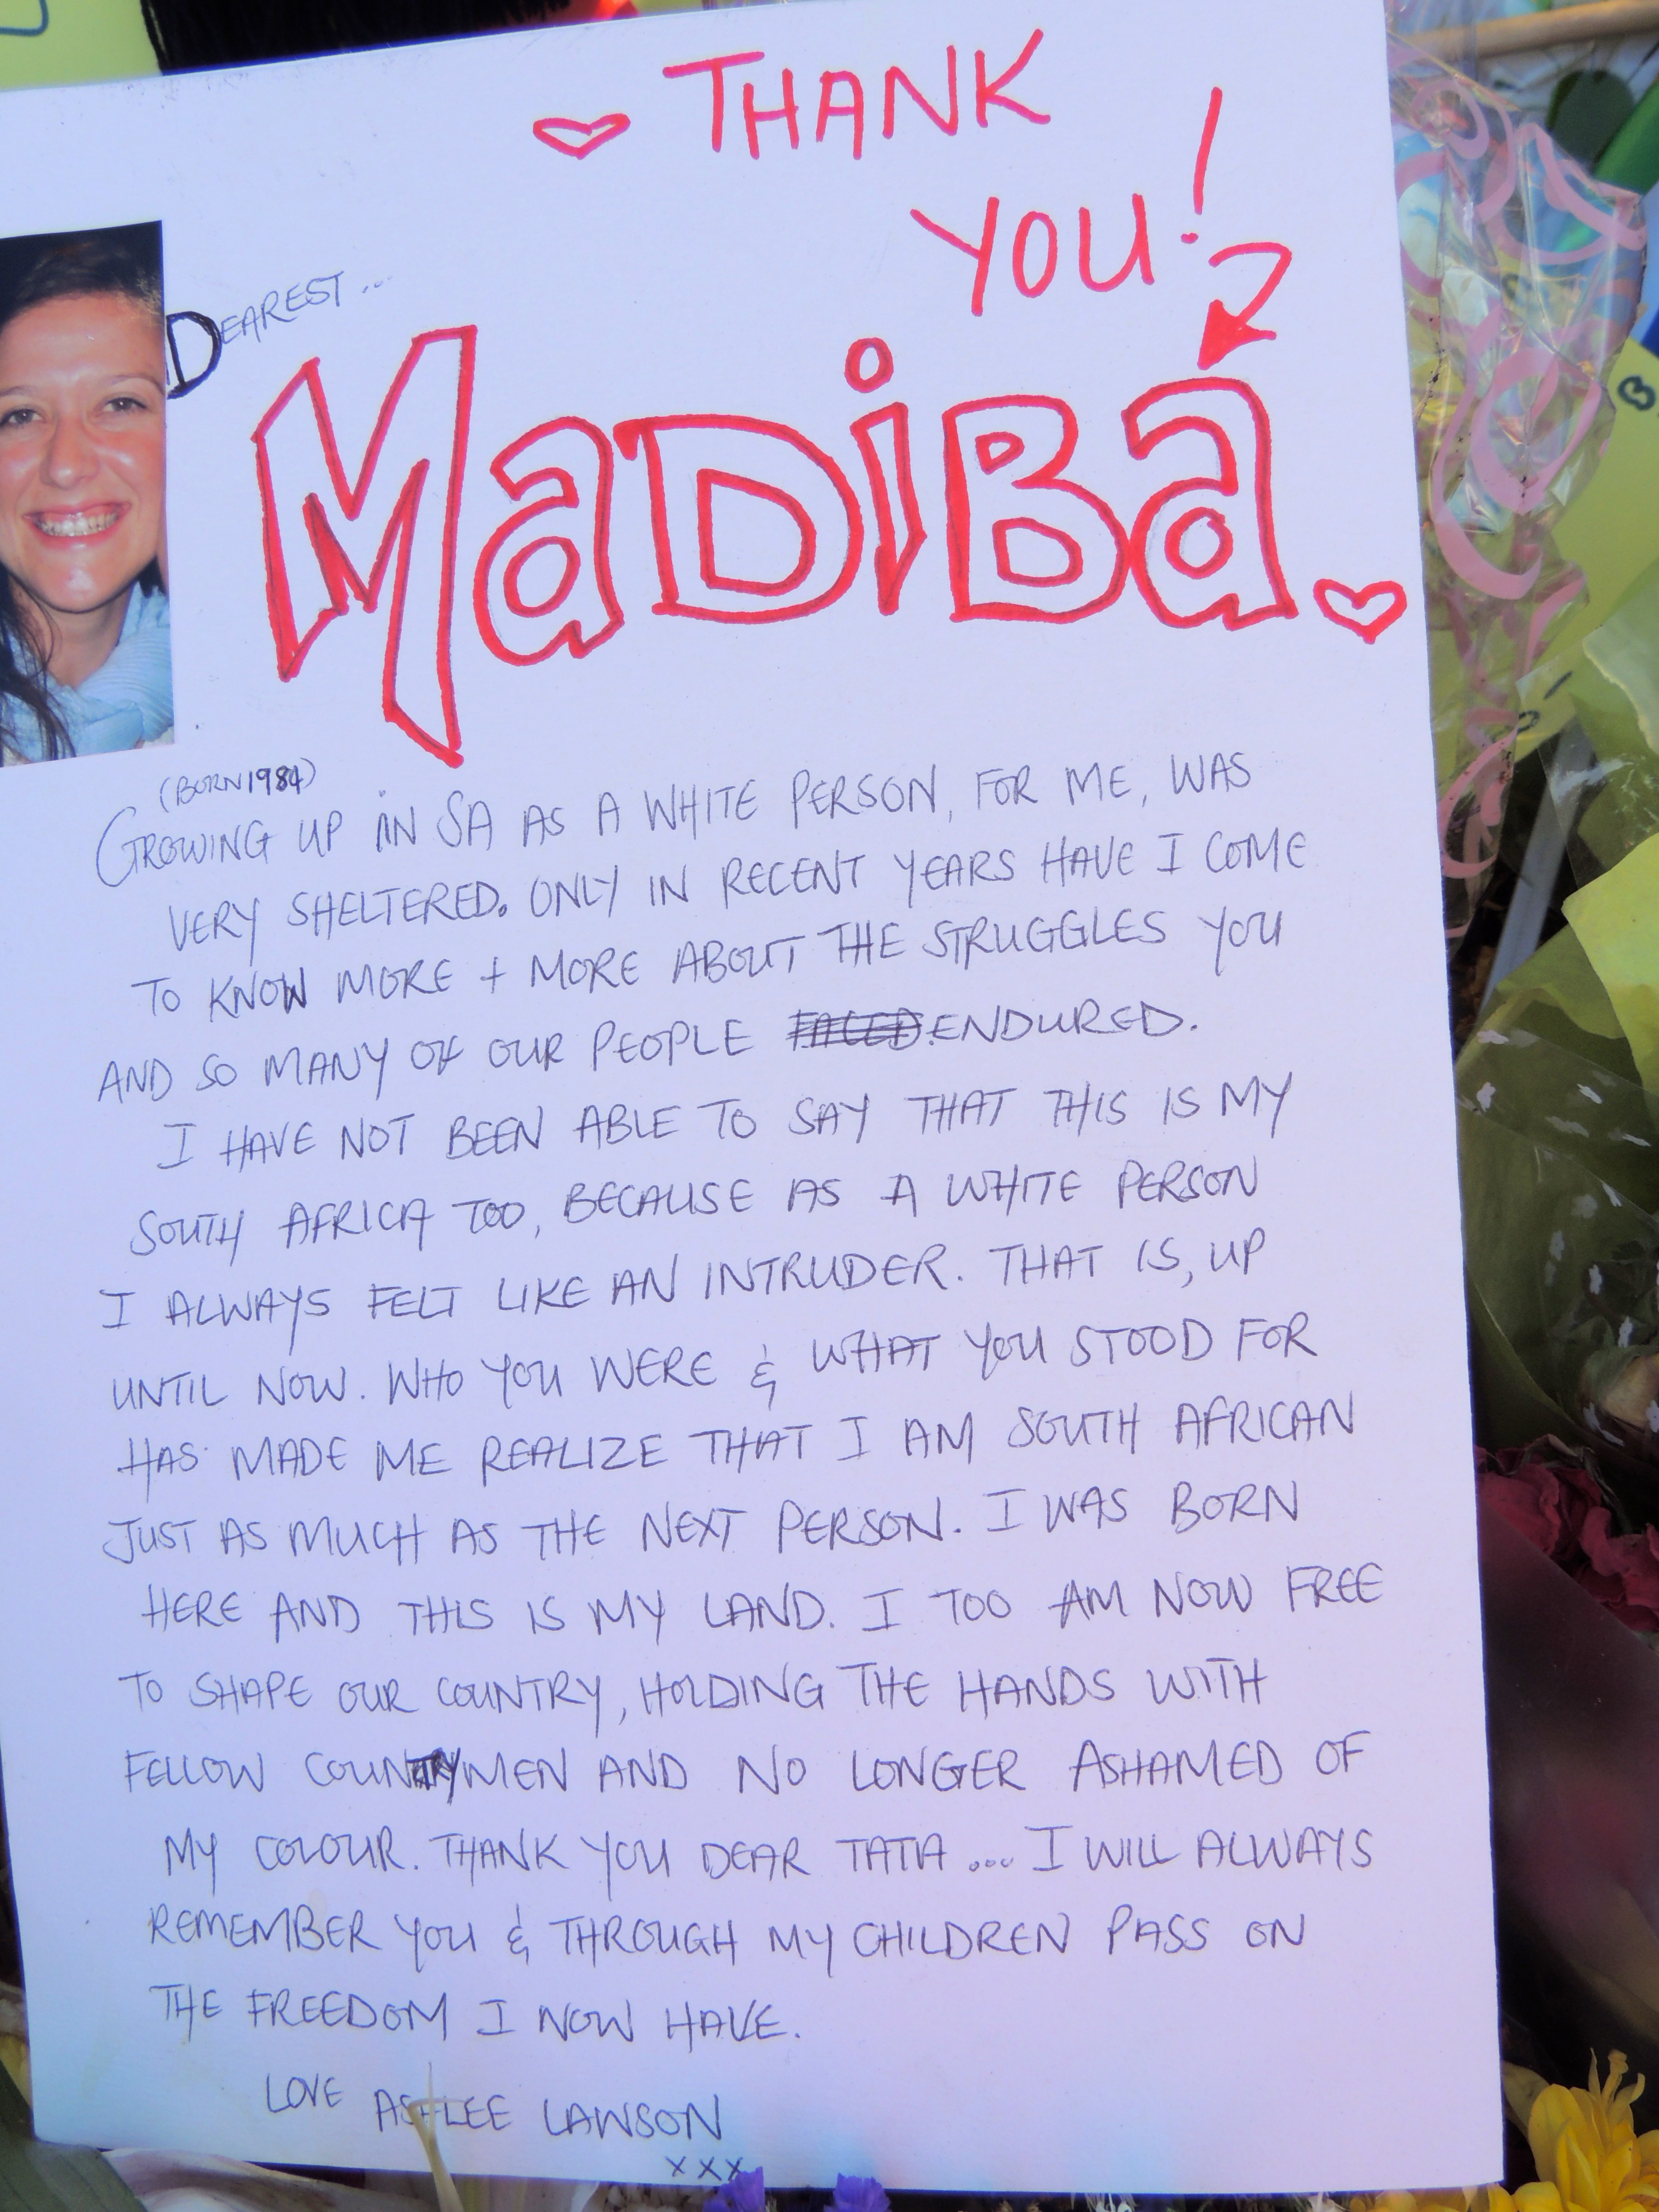 THANK
YOU!
DEAREST...
MaDiBa
(BORN 1984)
GROWING UP IN SA AS A WHITE PERSON, FOR ME, WAS
VERY SHELTERED. ONLY IN RECENT YEARS HAVE I COME
TO KNOW MORE + MORE ABOUT THE STRUGGLES YOU
AND SO MANY OF OUR PEOPLE FACED. ENDURED.
I HAVE NOT BEEN ABLE TO SAY THAT THIS IS MY
SOUTH AFRICA TOO, BECAUSE AS A WHITE PERSON
I ALWAYS FELT LIKE AN INTRUDER. THAT IS, UP
UNTIL NOW. WHO YOU WERE & WHAT YOU STOOD FOR
HAS MADE ME REALIZE THAT I AM SOUTH AFRICAN
JUST AS MUCH AS THE NEXT PERSON. I WAS BORN
HERE AND THIS IS MY LAND. I TOO AM NOW FREE
TO SHAPE OUR COUNTRY, HOLDING THE HANDS WITH
FELLOW COUNTRYMEN AND NO LONGER ASHAMED OF
MY COLOUR. THANK YOU DEAR TATA ... I WILL ALWAYS
REMEMBER YOU & THROUGH MY CHILDREN PASS ON
THE FREEDOM I NOW HAVE.
LOVE ASHLEE LAWSON
xxx